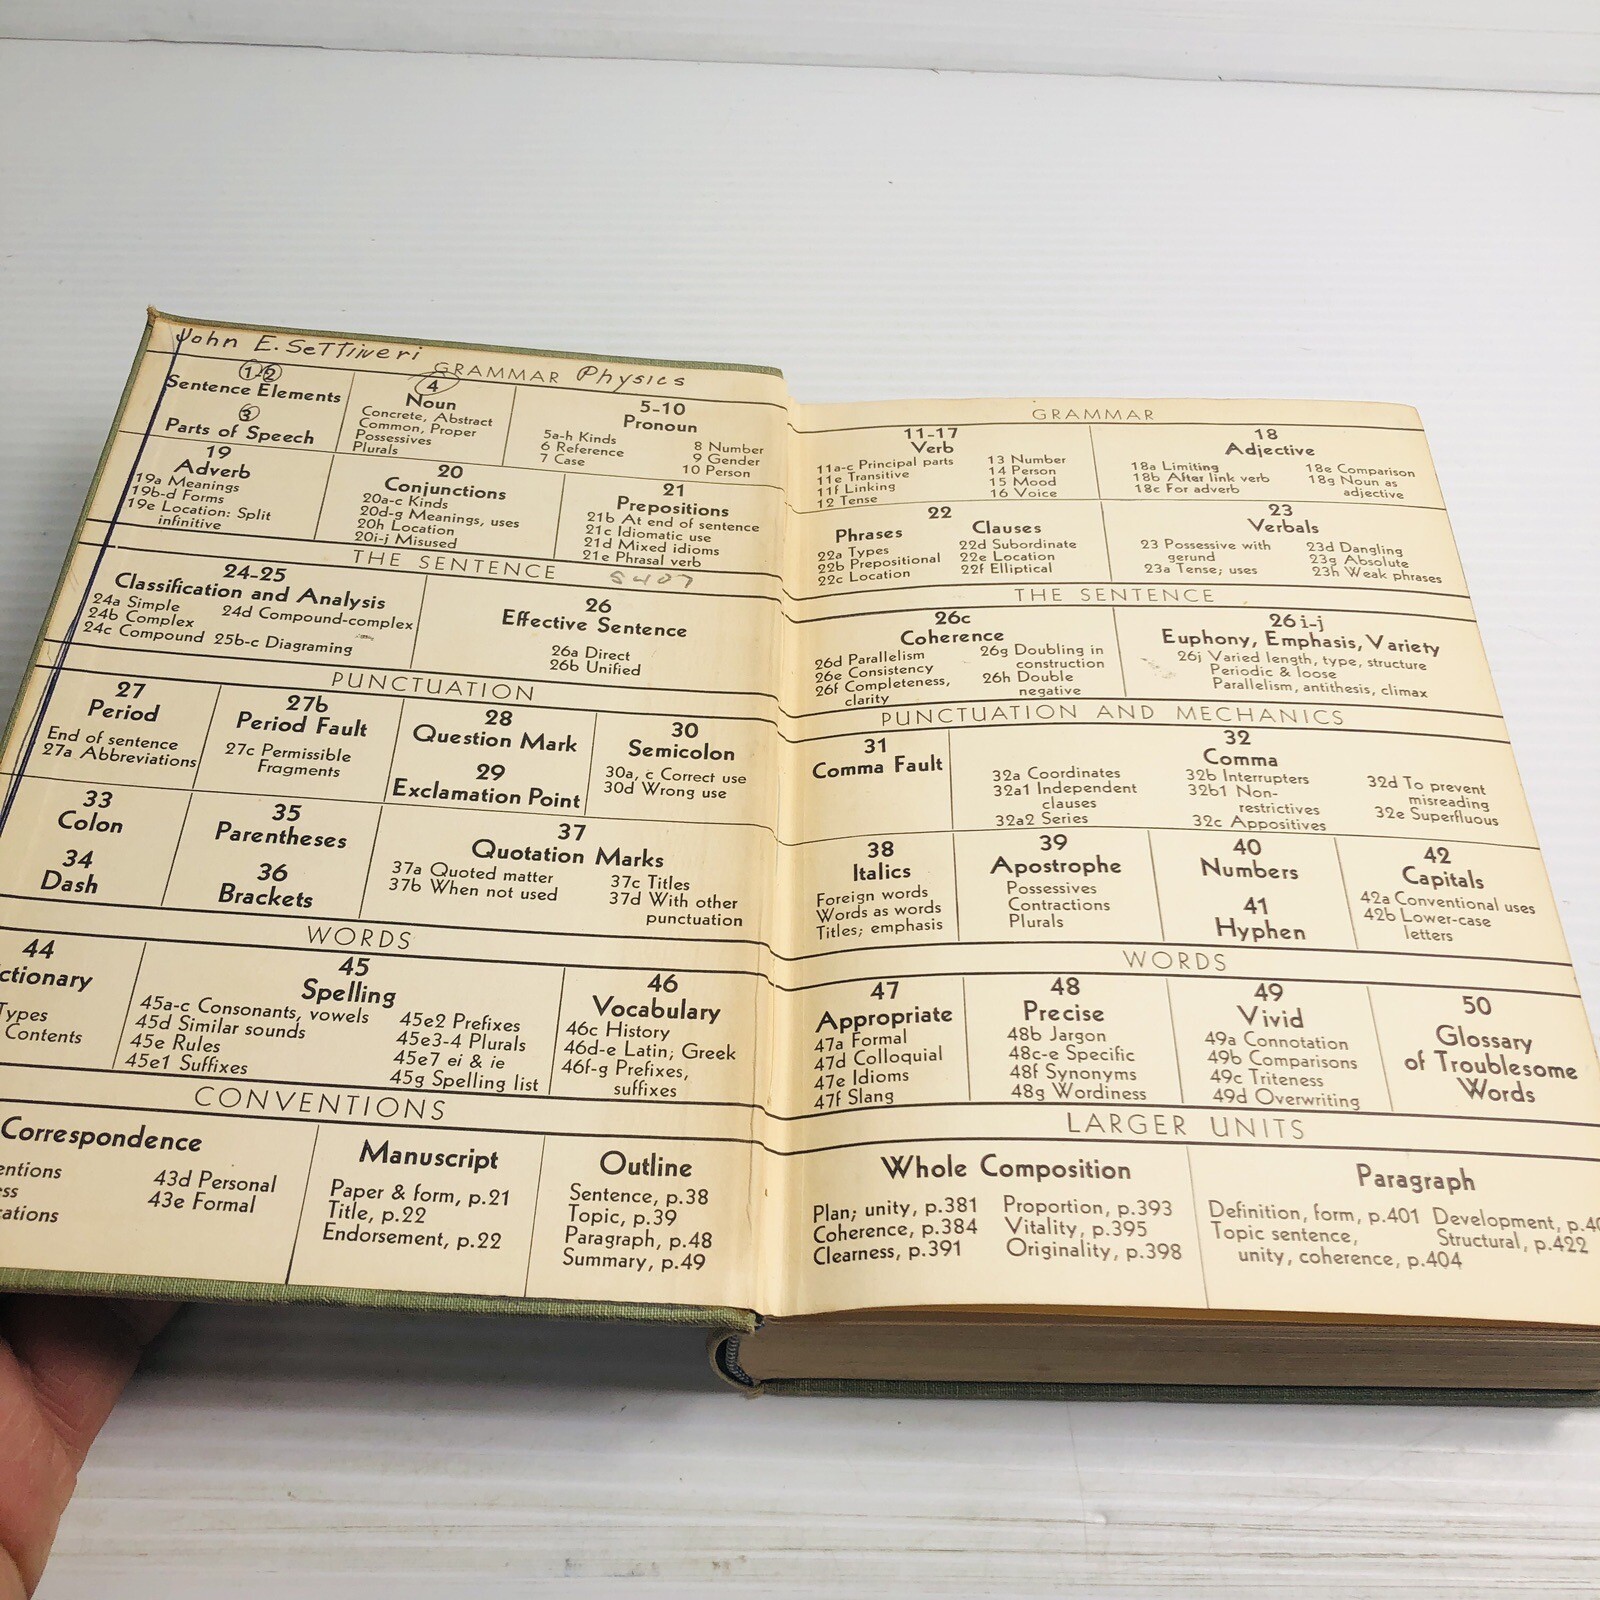 John E. Settiveri
GRAMMAR Physics
1-2
Sentence Elements
3
Parts of Speech
4
Noun
Concrete, Abstract
Common, Proper
Possessives
Plurals
5-10
Pronoun
5a-h Kinds
6 Reference
7 Case
8 Number
9 Gender
10 Person
19
Adverb
19a Meanings
19b-d Forms
19e Location: Split
infinitive
20
Conjunctions
20a-c Kinds
20d-g Meanings, uses
20h Location
20i-j Misused
21
Prepositions
21b At end of sentence
21c Idiomatic use
21d Mixed idioms
21e Phrasal verb
THE SENTENCE
24-25
Classification and Analysis
24a Simple
24b Complex
24c Compound
24d Compound-complex
25b-c Diagraming
26
Effective Sentence
26a Direct
26b Unified
PUNCTUATION
27
Period
End of sentence
27a Abbreviations
27b
Period Fault
27c Permissible
Fragments
28
Question Mark
29
Exclamation Point
30
Semicolon
30a, c Correct use
30d Wrong use
33
Colon
34
Dash
35
Parentheses
36
Brackets
37
Quotation Marks
37a Quoted matter
37b When not used
37c Titles
37d With other
punctuation
WORDS
44
ctionary
Types
Contents
45
Spelling
45a-c Consonants, vowels
45d Similar sounds
45e Rules
45e1 Suffixes
45e2 Prefixes
45e3-4 Plurals
45e7 ei & ie
45g Spelling list
46
Vocabulary
46c History
46d-e Latin; Greek
46f-g Prefixes,
suffixes
CONVENTIONS
Correspondence
entions
ess
cations
43d Personal
43e Formal
Manuscript
Paper & form, p.21
Title, p.22
Endorsement, p.22
Outline
Sentence, p.38
Topic, p.39
Paragraph, p.48
Summary, p.49
GRAMMAR
11-17
Verb
11a-c Principal parts
11e Transitive
11f Linking
12 Tense
13 Number
14 Person
15 Mood
16 Voice
18
Adjective
18a Limiting
18b After link verb
18c For adverb
18e Comparison
18g Noun as
adjective
22
Phrases Clauses
22a Types
22b Prepositional
22c Location
22d Subordinate
22e Location
22f Elliptical
23
Verbals
23 Possessive with
gerund
23a Tense; uses
23d Dangling
23g Absolute
23h Weak phrases
THE SENTENCE
26c
Coherence
26d Parallelism
26e Consistency
26f Completeness,
clarity
26g Doubling in
construction
26h Double
negative
26 i-j
Euphony, Emphasis, Variety
26j Varied length, type, structure
Periodic & loose
Parallelism, antithesis, climax
PUNCTUATION AND MECHANICS
31
Comma Fault
32
Comma
32a Coordinates
32a1 Independent
clauses
32a2 Series
32b Interrupters
32b1 Non-
restrictives
32c Appositives
32d To prevent
misreading
32e Superfluous
38
Italics
Foreign words
Words as words
Titles; emphasis
39
Apostrophe
Possessives
Contractions
Plurals
40
Numbers
41
Hyphen
42
Capitals
42a Conventional uses
42b Lower-case
letters
WORDS
47
Appropriate
47a Formal
47d Colloquial
47e Idioms
47f Slang
48
Precise
48b Jargon
48c-e Specific
48f Synonyms
48g Wordiness
49
Vivid
49a Connotation
49b Comparisons
49c Triteness
49d Overwriting
50
Glossary
of Troublesome
Words
LARGER UNITS
Whole Composition
Plan; unity, p.381
Coherence, p.384
Clearness, p.391
Proportion, p.393
Vitality, p.395
Originality, p.398
Paragraph
Definition, form, p.401
Topic sentence,
unity, coherence, p.404
Development, p.40
Structural, p.422